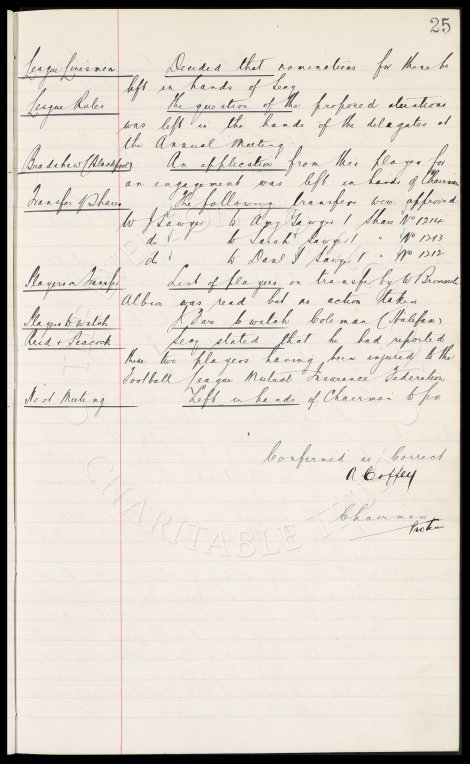 25
League Linesmen Decided that nominations for these be
left in hands of Secy
League Rules The question of the proposed alterations
was left in the hands of the delegates at
the Annual Meeting
Bradshaw (Blackpool) An application from this player for
an engagement was left in hands of Chairman
Transfer of Shares The following transfers were approved
W J Sawyer to Amy Sawyer 1 Share No 1214
do to Sarah Sawyer 1 " No 1213
do to Danl Sawyer 1 " No 1212
Players on Transfer List of players on transfer by W Bromwich
Albion was read but no action taken
Players to watch to watch Coleman (Halifax)
Reid & Peacock Secy stated that he had reported
these two players having been injured to the
Football League Mutual Insurance Federation
Next Meeting Left in hands of Chairman to fix
Confirmed as Correct
A Coffey
Chairman
Protem
CHARITABLE TRUST